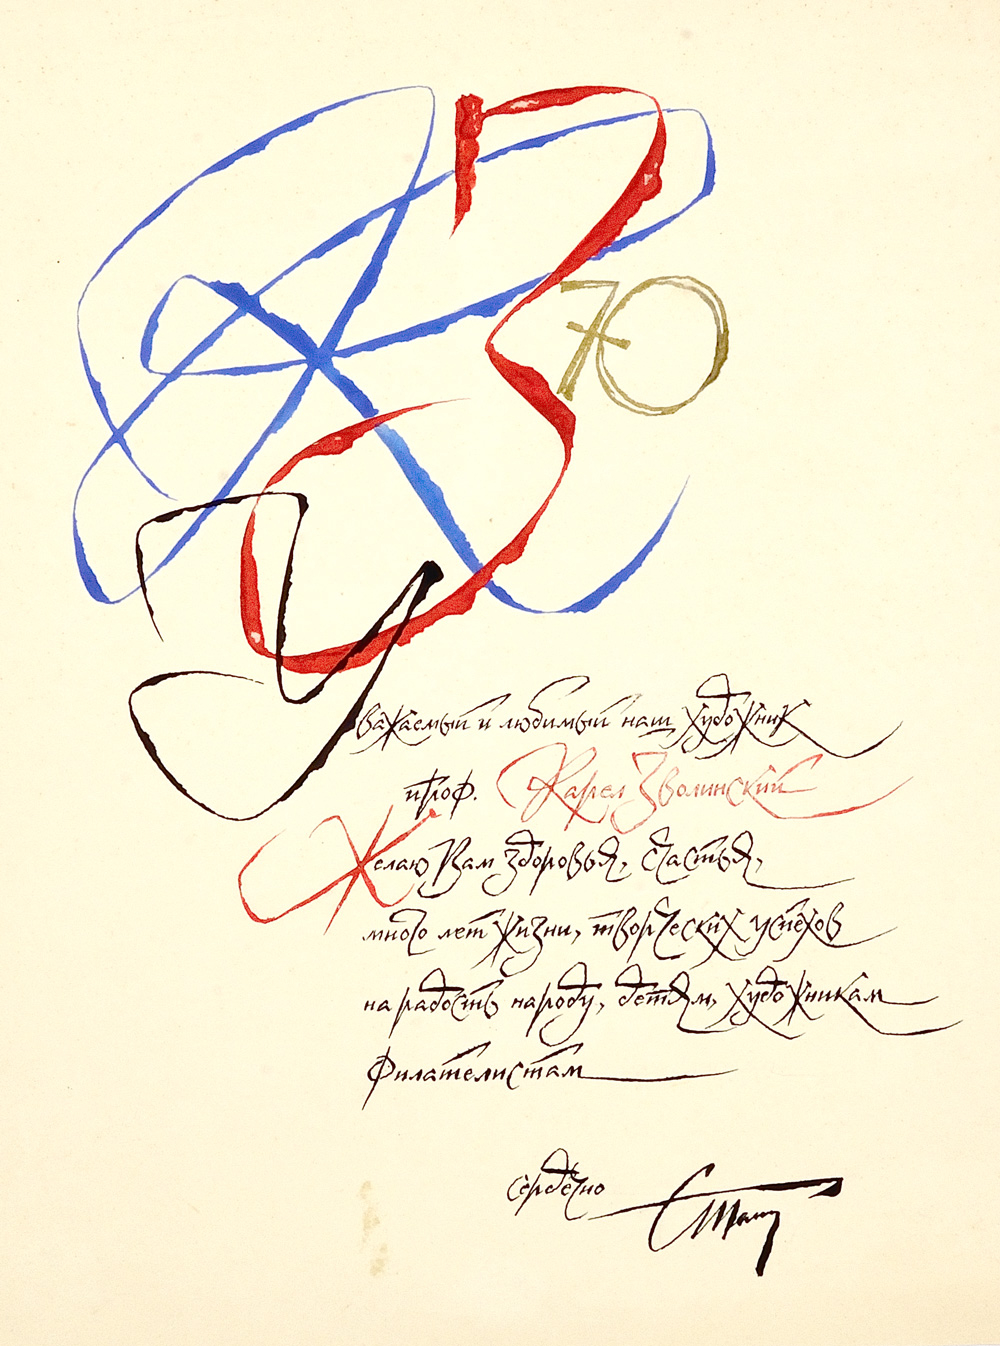 КЗ
70
Уважаемый и любимый наш художник
проф. Карел Зволинский
Желаю Вам здоровья, счастья,
много лет жизни, творческих успехов
на радость народу, детям, художникам
филателистам
сердечно